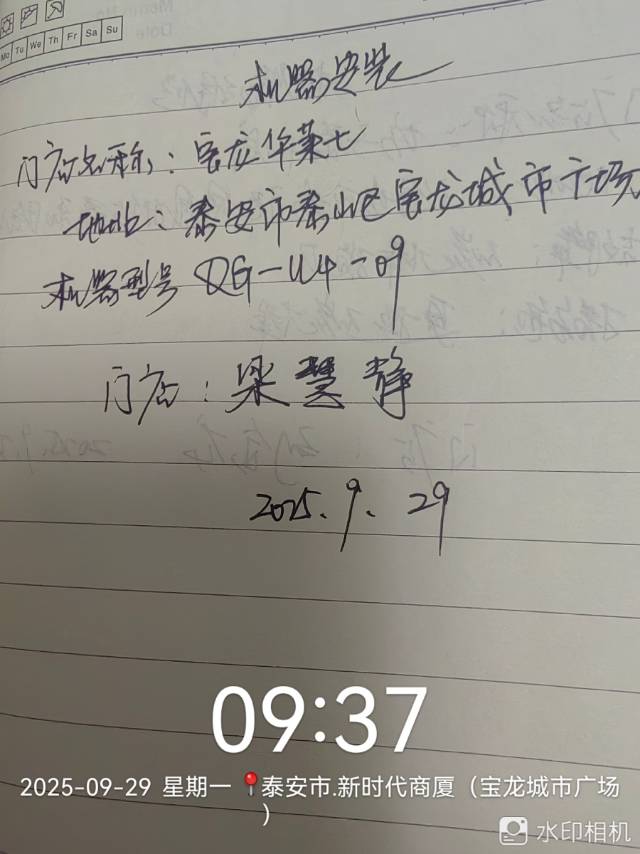 Mo Tu We Th Fr Sa Su
机器安装
门店名称：宝龙华莱士
地址：泰安市泰山区宝龙城市广场
机器型号 QG-U4-09
门店：梁慧静
2025.9.29
09:37
2025-09-29 星期一 📍泰安市.新时代商厦（宝龙城市广场
）
水印相机